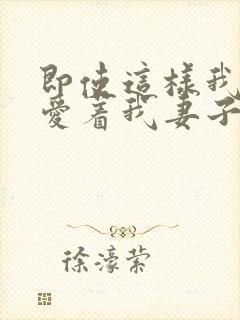 即使這樣我
愛著我妻子
徐濠縈